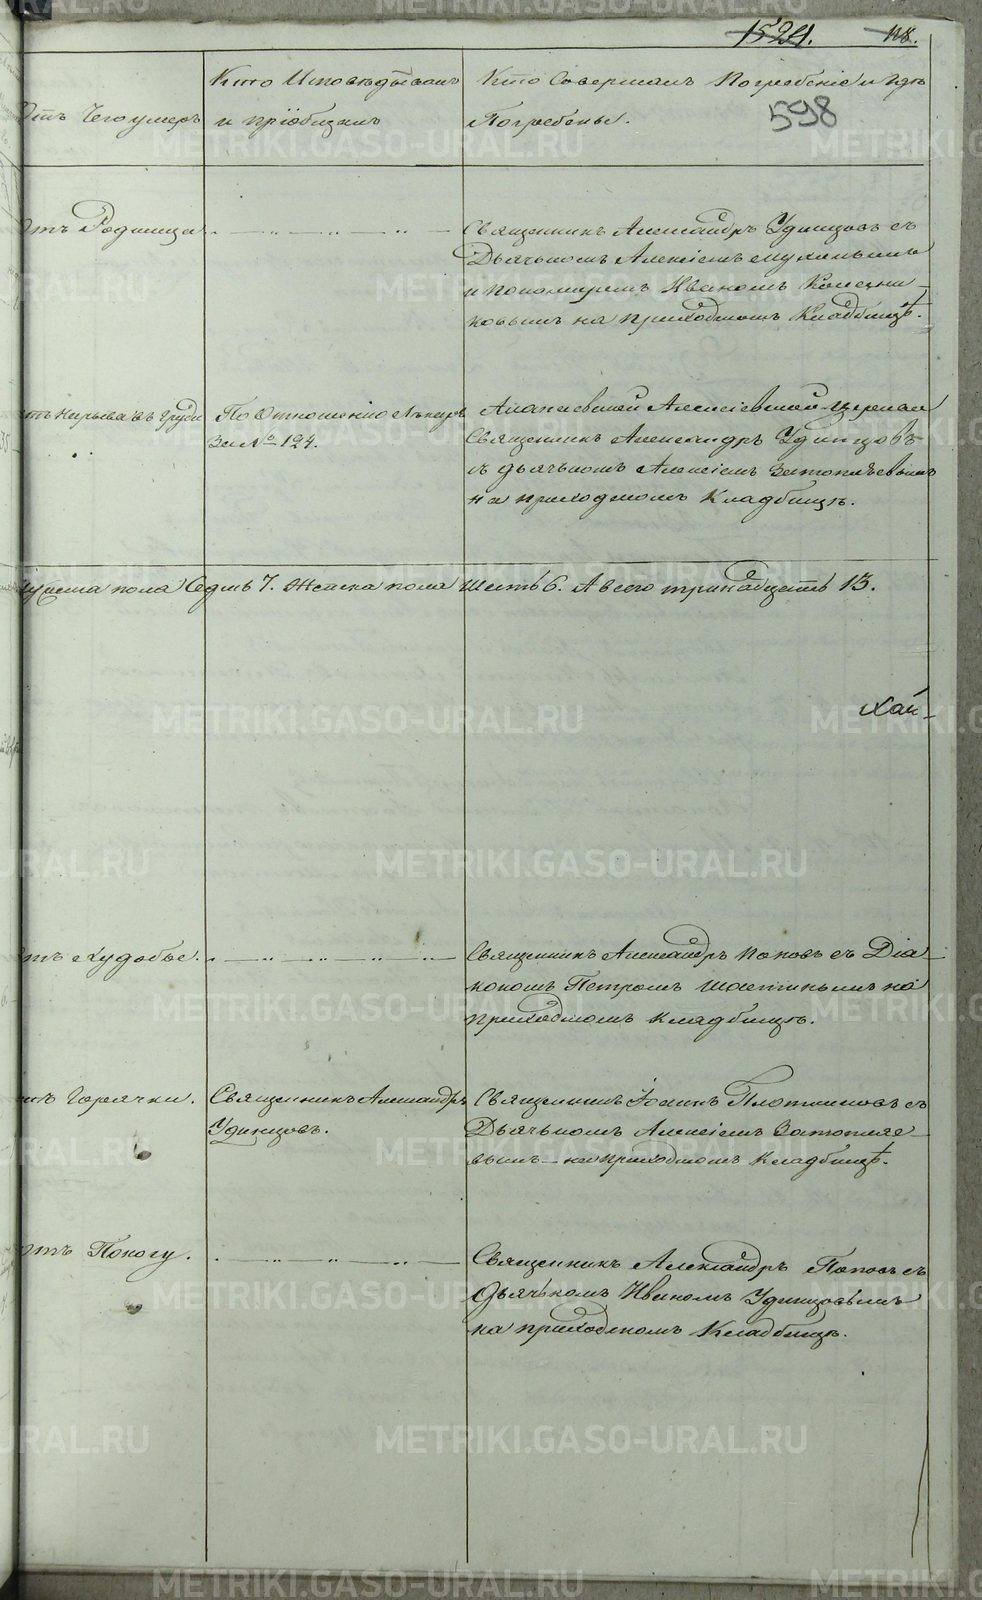 1524. 118.
598
Отъ Чего умеръ
Кто Исповѣдывалъ
и пріобщалъ
Кто Совершалъ Погребеніе и гдѣ
Погребены.
Отъ Родимца
Священникъ Александръ Удинцовъ съ
Дьячькомъ Алексіемъ
и пономаремъ Иваномъ Колесни-
ковымъ на приходскомъ Кладбищѣ.
Отъ Нарыва въ Груди
По Отношенію Лѣкаря
За № 194.
Алапаевской Алексіевской Церкви
Священникъ Александръ Удинцовъ
съ дьячькомъ Алексіемъ Затопляевымъ
на приходскомъ Кладбищѣ.
Мужеска пола Седмь 7. Женска пола Шесть 6. А всего тринадцать 13.
Отъ Худобы.
Священникъ Александръ Поповъ съ Діа-
кономъ Петромъ на
приходскомъ кладбищѣ.
Отъ Горячки.
Священникъ Александръ
Удинцовъ.
Священникъ Іоаннъ Плотниковъ съ
Дьячькомъ Алексіемъ Затопляе-
вымъ на приходскомъ Кладбищѣ.
Отъ Поносу.
Священникъ Александръ Поповъ съ
Дьячькомъ Иваномъ Удинцовымъ
на приходскомъ Кладбищѣ.
METRIKI.GASO-URAL.RU